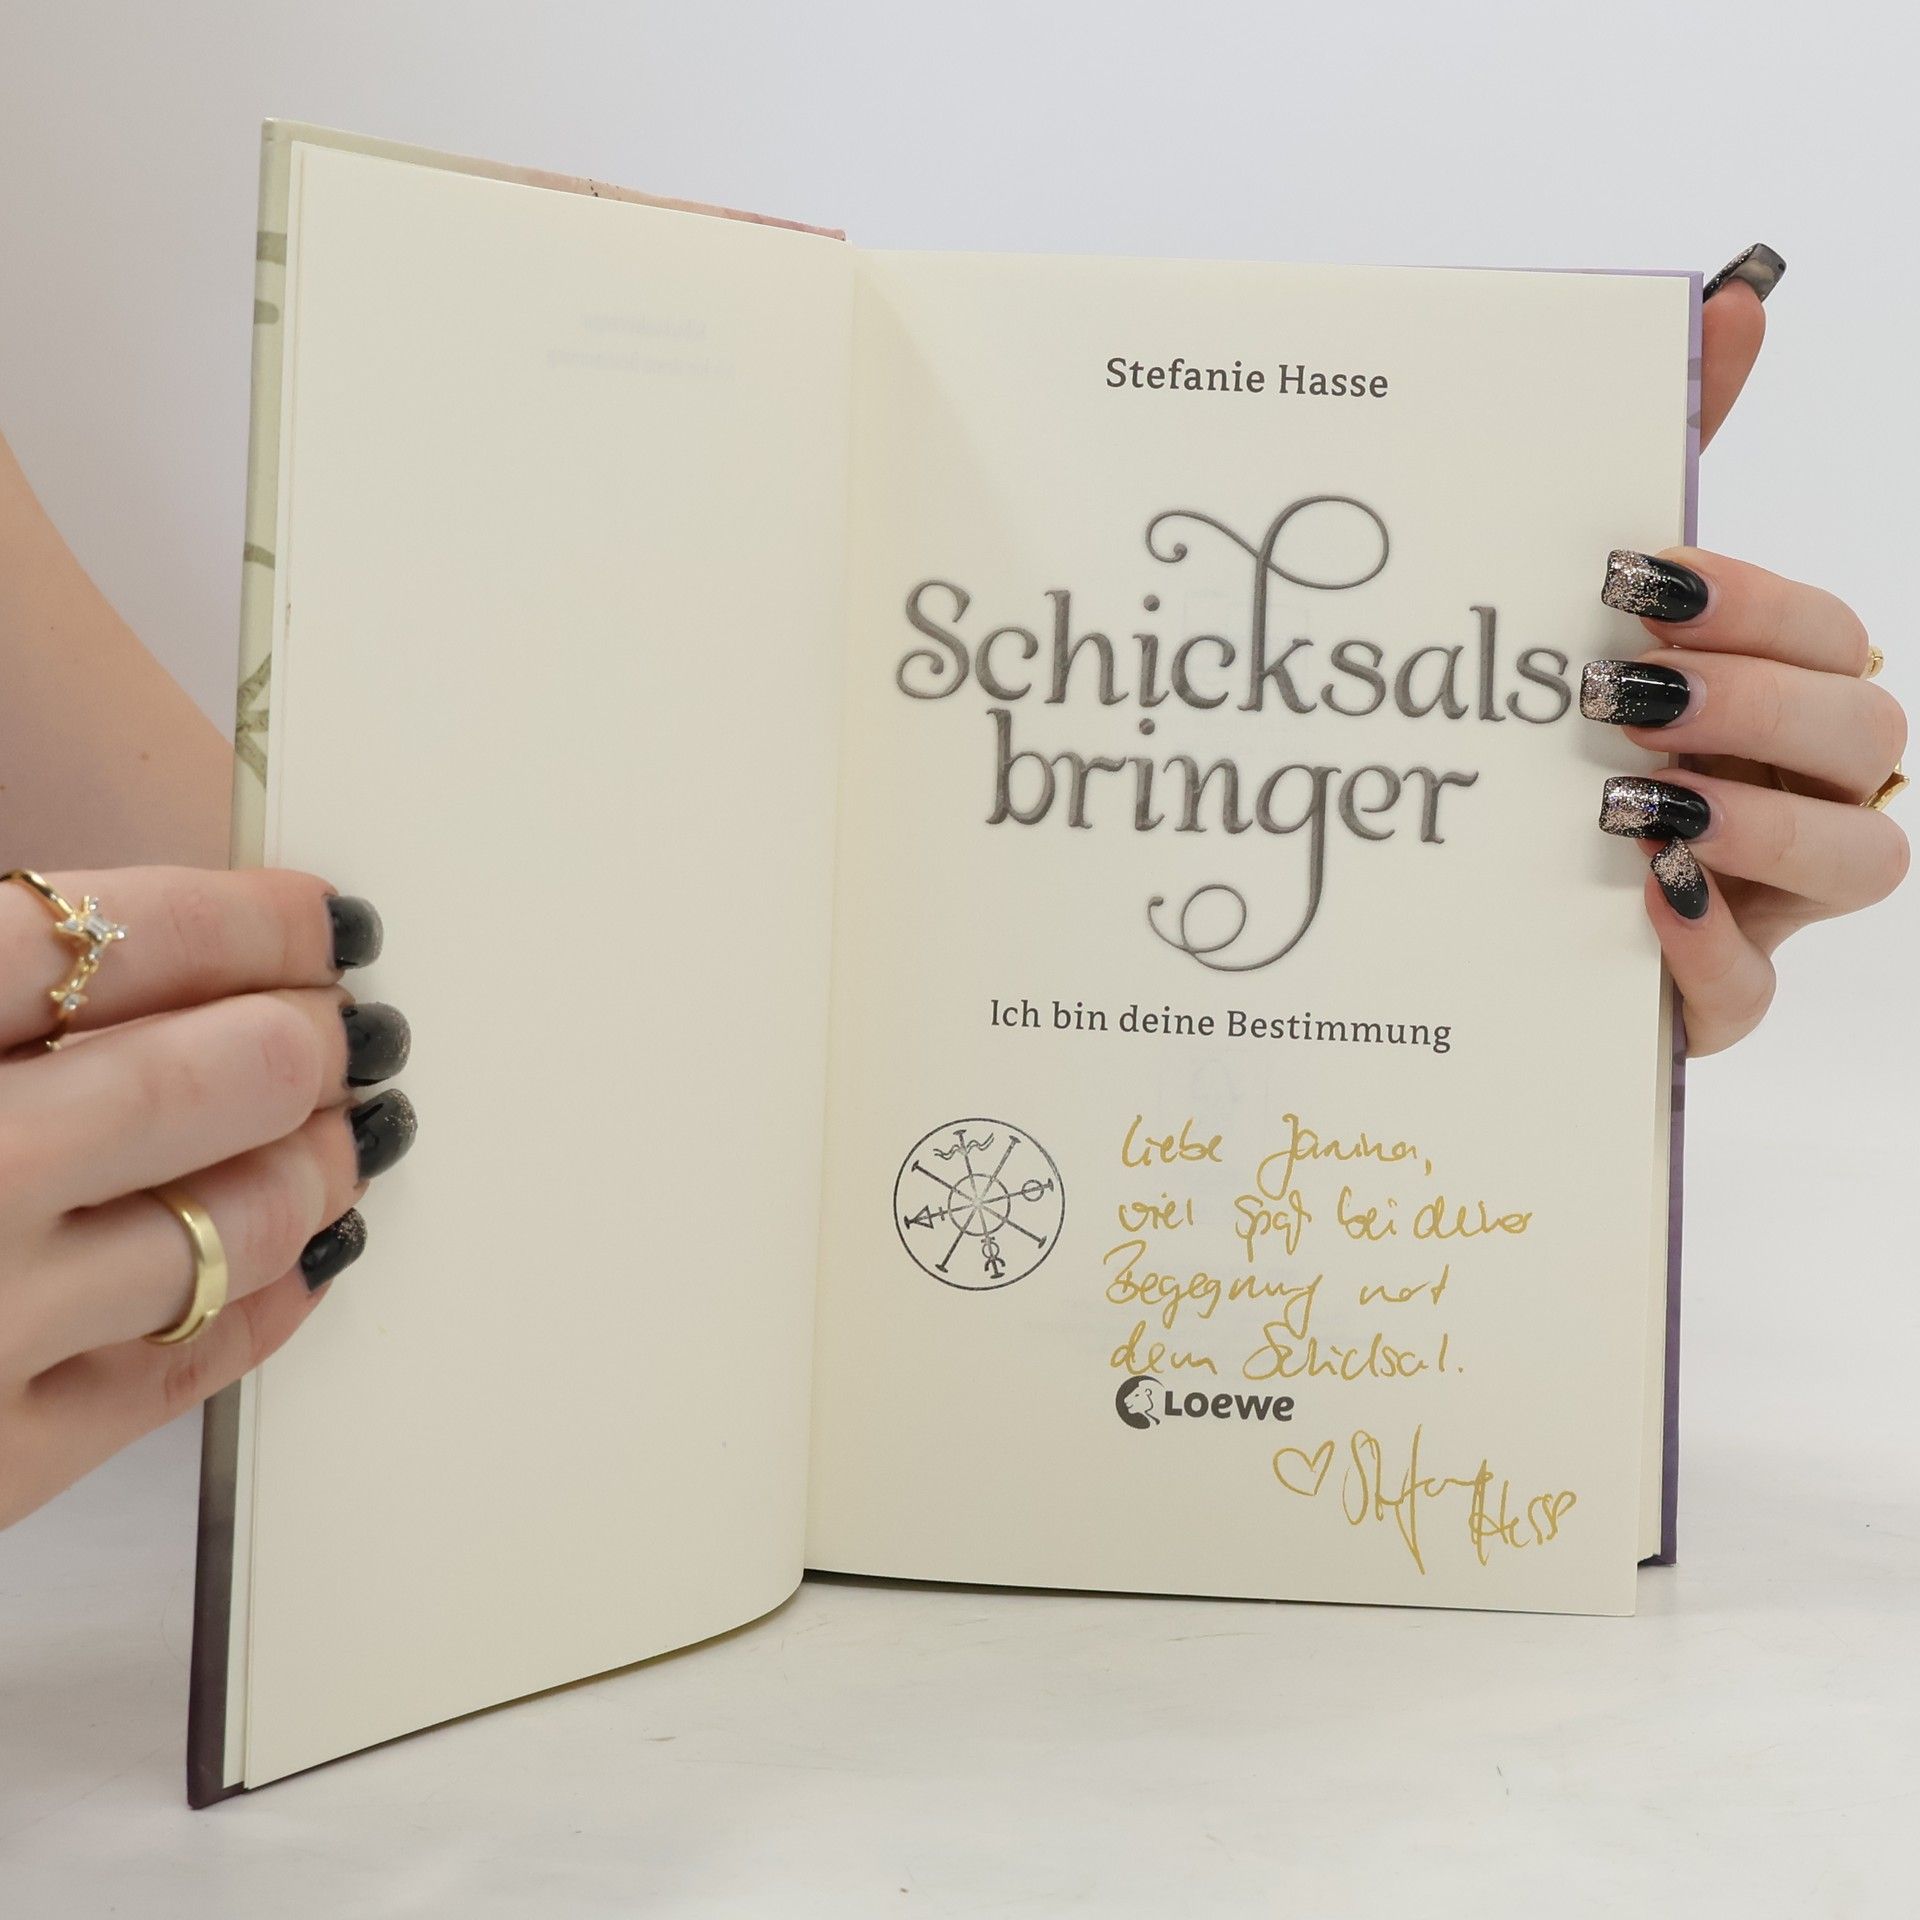 Stefanie Hasse
Schicksals
bringer
Ich bin deine Bestimmung
Liebe Janina,
viel Spaß bei deiner
Begegnung mit
dem Schicksal.
Loewe
Stefanie Hasse